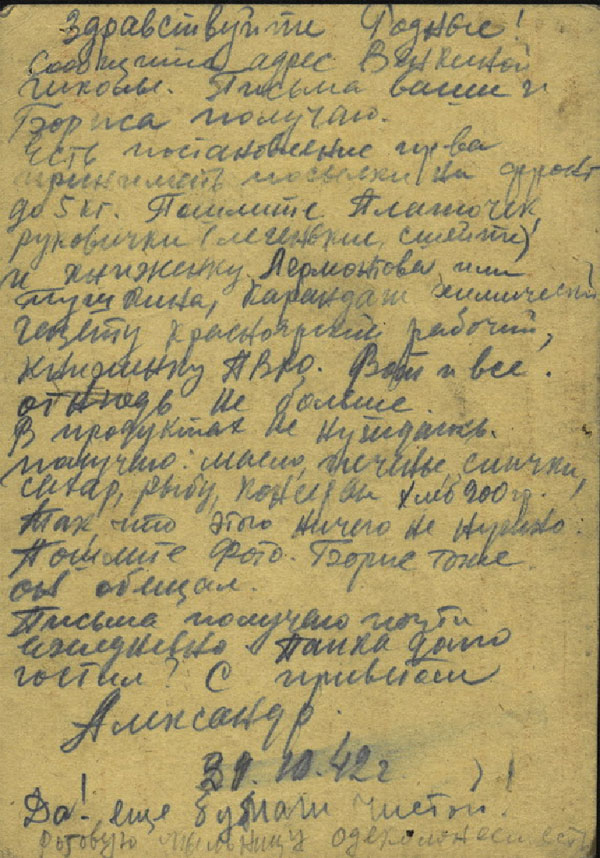 Здравствуйте Родные!
Сообщите адрес Венкиной
Письма ваши и
Бориса получаю.
Есть постановление пр-ва
принимать посылки на фронт
до 5 кг. Пошлите Платочек,
руковички (легенькие, сшейте)
и книженку Лермонтова или
Пушкина, Карандаш химический
газету Красноярский рабочий,
книжинку ПВХО. Вот и все.
отнюдь не больше.
В продуктах не нуждаюсь.
получаю: масло, печенье, спички,
сахар, рыбу, консервы хлеб 900 гр.
Так что этого ничего не нужно.
Пошлите Фото. Борис тоже
обещал.
Письма получаю почти
ежедневно. Панка долго
гостил? С приветом
Александр.
31.10.42 г
Да! еще бумаги чистой.
мыльницу одеколон если есть